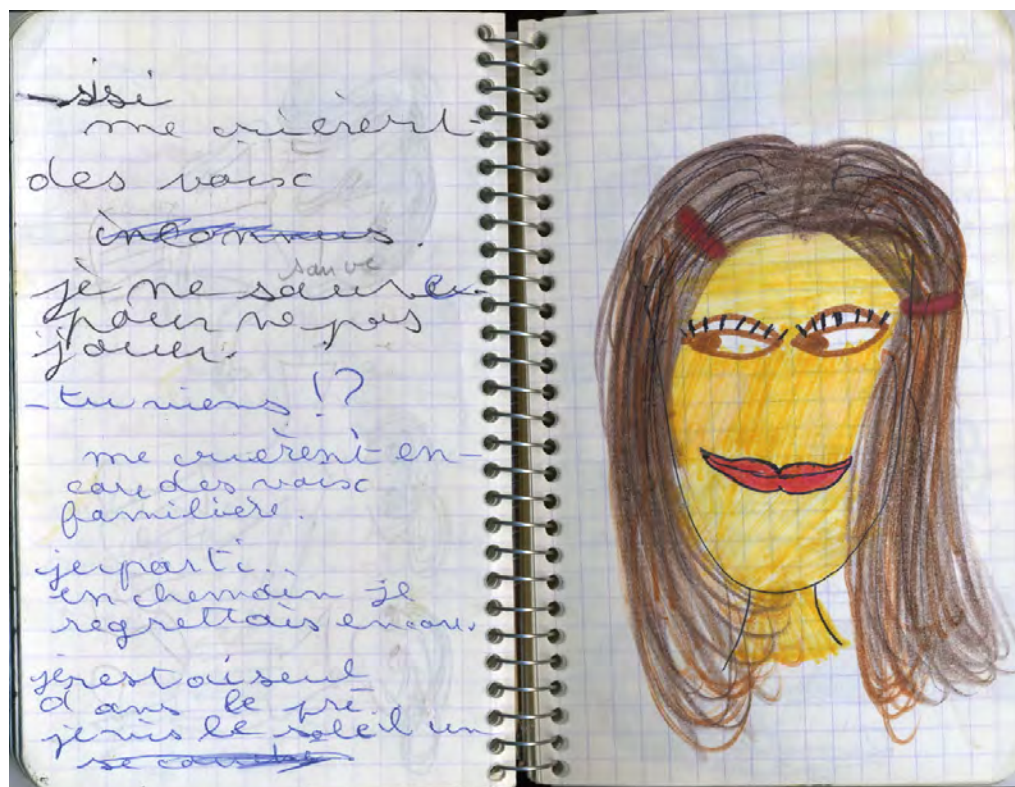 - si si
me crièrent
des voisc
inconnus.
sauve
je ne sauve
pour ne pas
jouer.
- tu viens !?
me crièrent en-
core des voisc
familière.
je parti..
en chemain je
regrettais encore.
je restai seul
dans le pré
je vis le soleil un
se couche